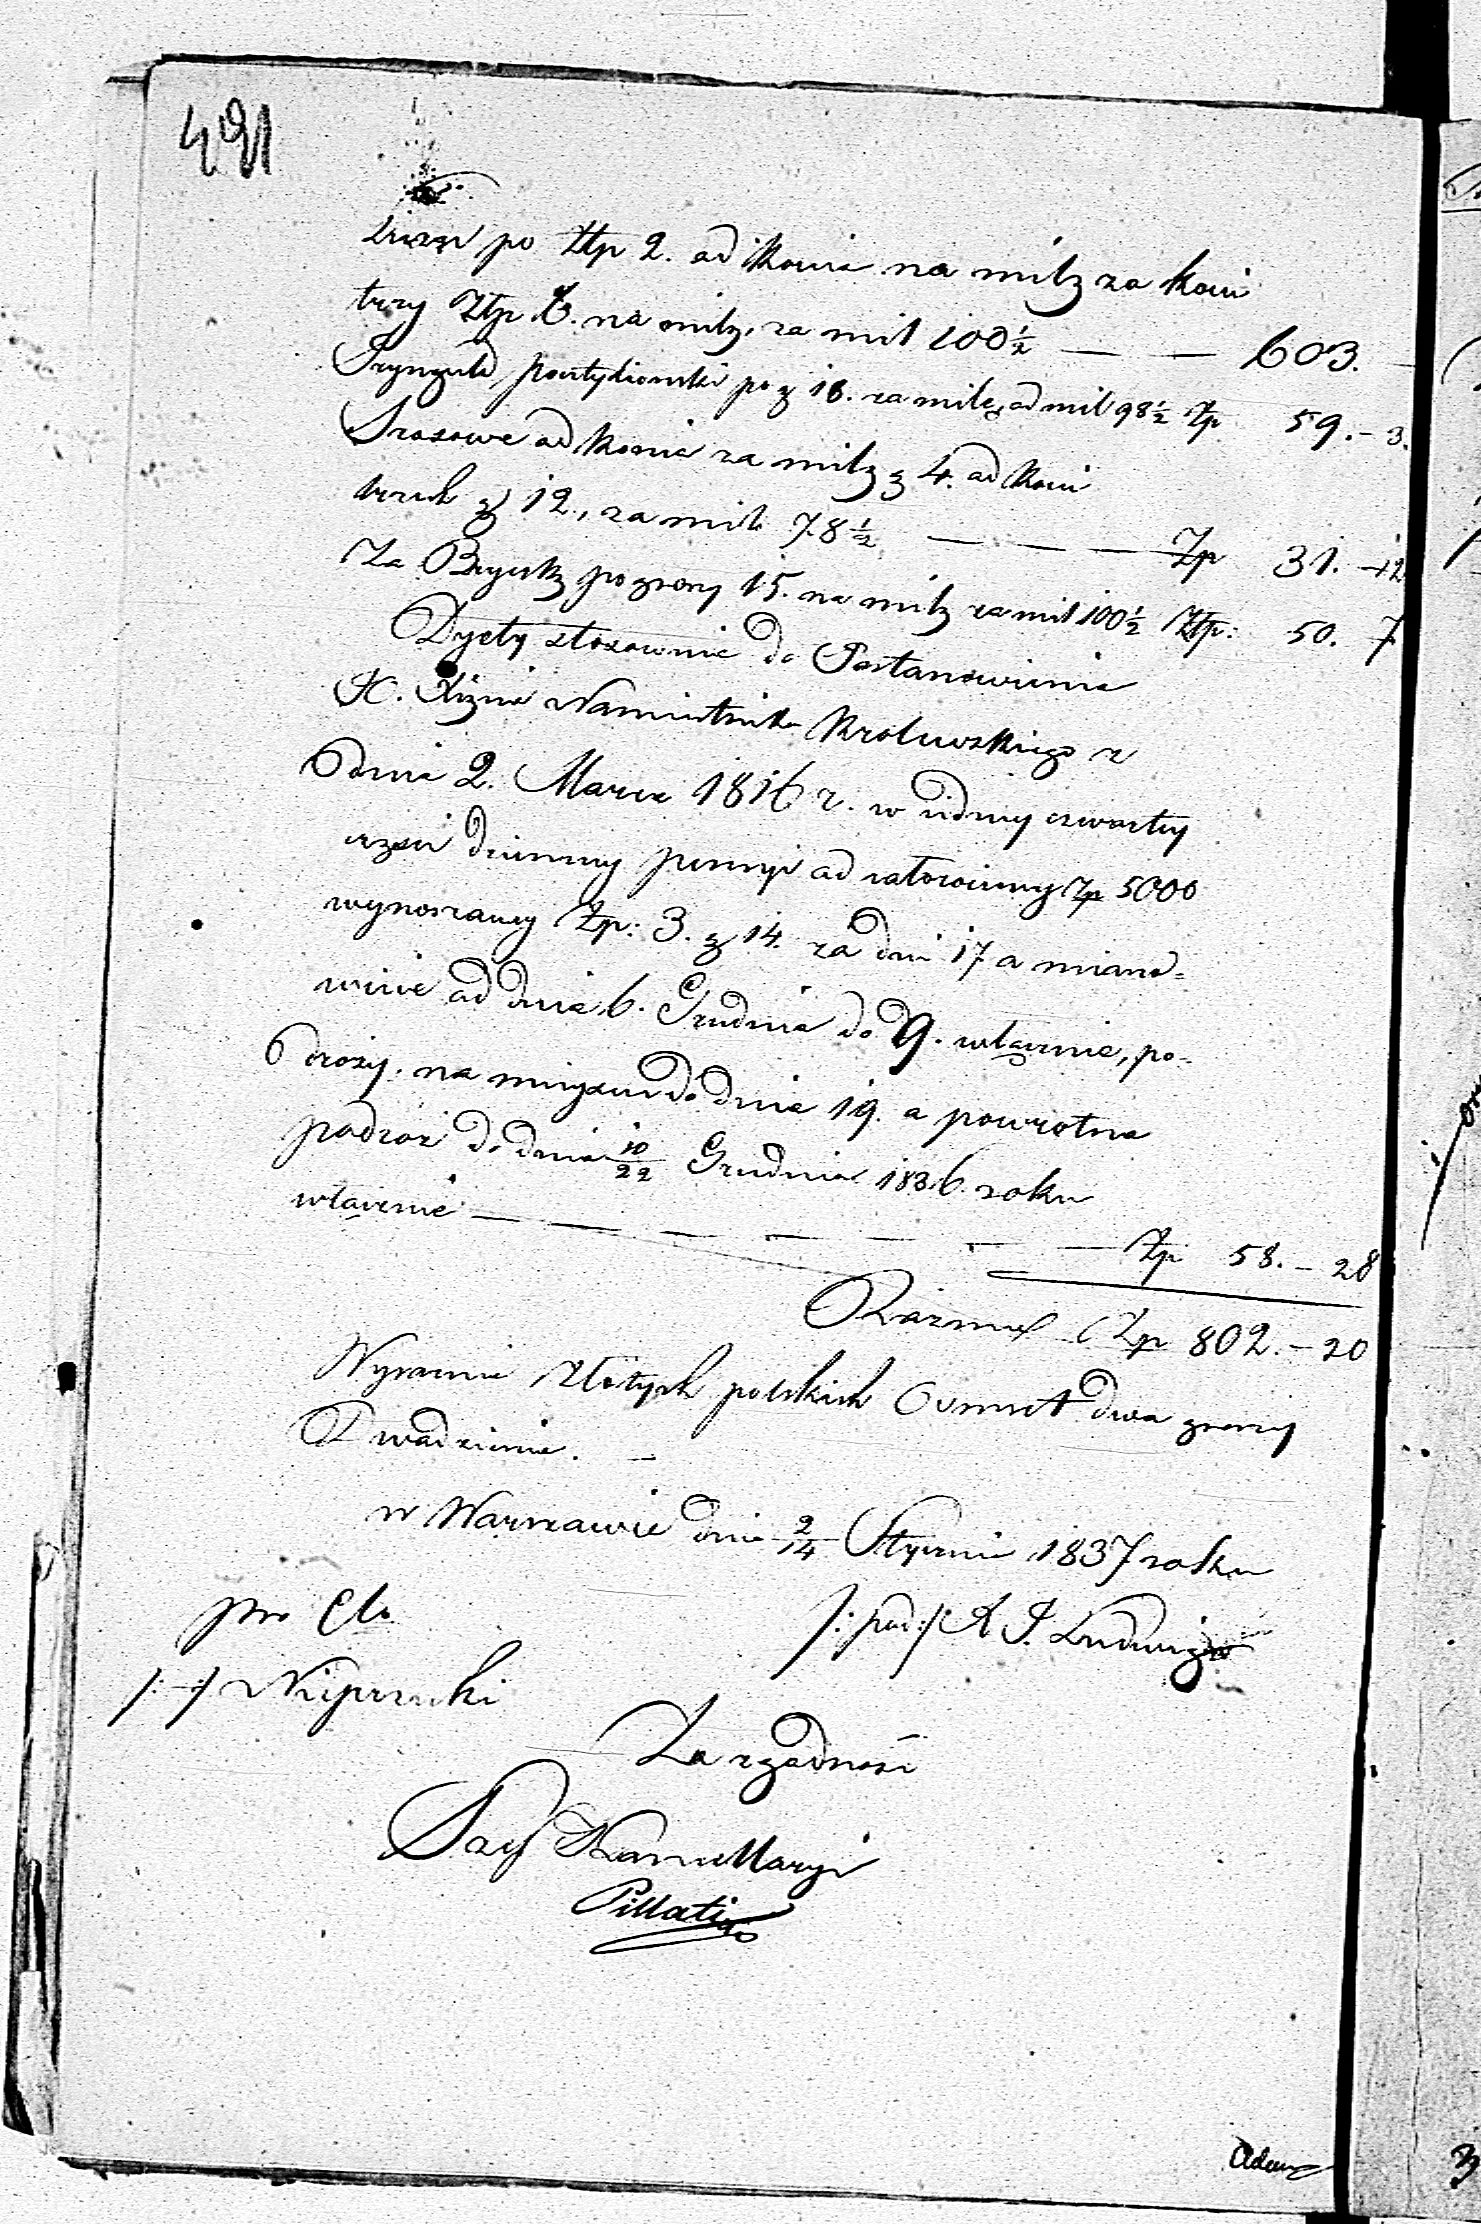 491
licząc po Złp 2. od konia na milę za koni
trzy Złp 6. na milę, za mil 100½ — — 603. —
Tryngeld pocztylionski po g 18. za milę, od mil 98½ Zp 59. – 3.
Szosowe od konia za milę g 4. od koni
trzech g 12., za mil 78½ — — — Zp 31. – 12
Za Bryczkę po groszy 15. na milę za mil 100½ Złp: 50. 7
Dyety stosownie do Postanowienia
X. Xięcia Namiestnika Krolewskiego z
dnia 2. Marca 1816 r. w iedney czwartey
części dzienney pensyi od całoroczney Zp 5000
wynoszącey Zp: 3. g 14. za dni 17 a miano=
wicie od dnia 6. Grudnia do 9. włącznie, po-
droży, na mieyscu do dnia 19. a powrotna
podroż do dnia 10/22 Grudnia 1836. roku
włącznie — — — — — — — Zp 58. – 28
Razem Zp 802. – 20
Wyraźnie Złotych polskich Ośmset dwa groszy
Dwadzieścia. —
w Warszawie dnia 2/14 Stycznia 1837 roku
/: pod :/ A J. Ludwig
/: – :/
Za zgodność
Szef Kancellaryi
Pillati
Adam